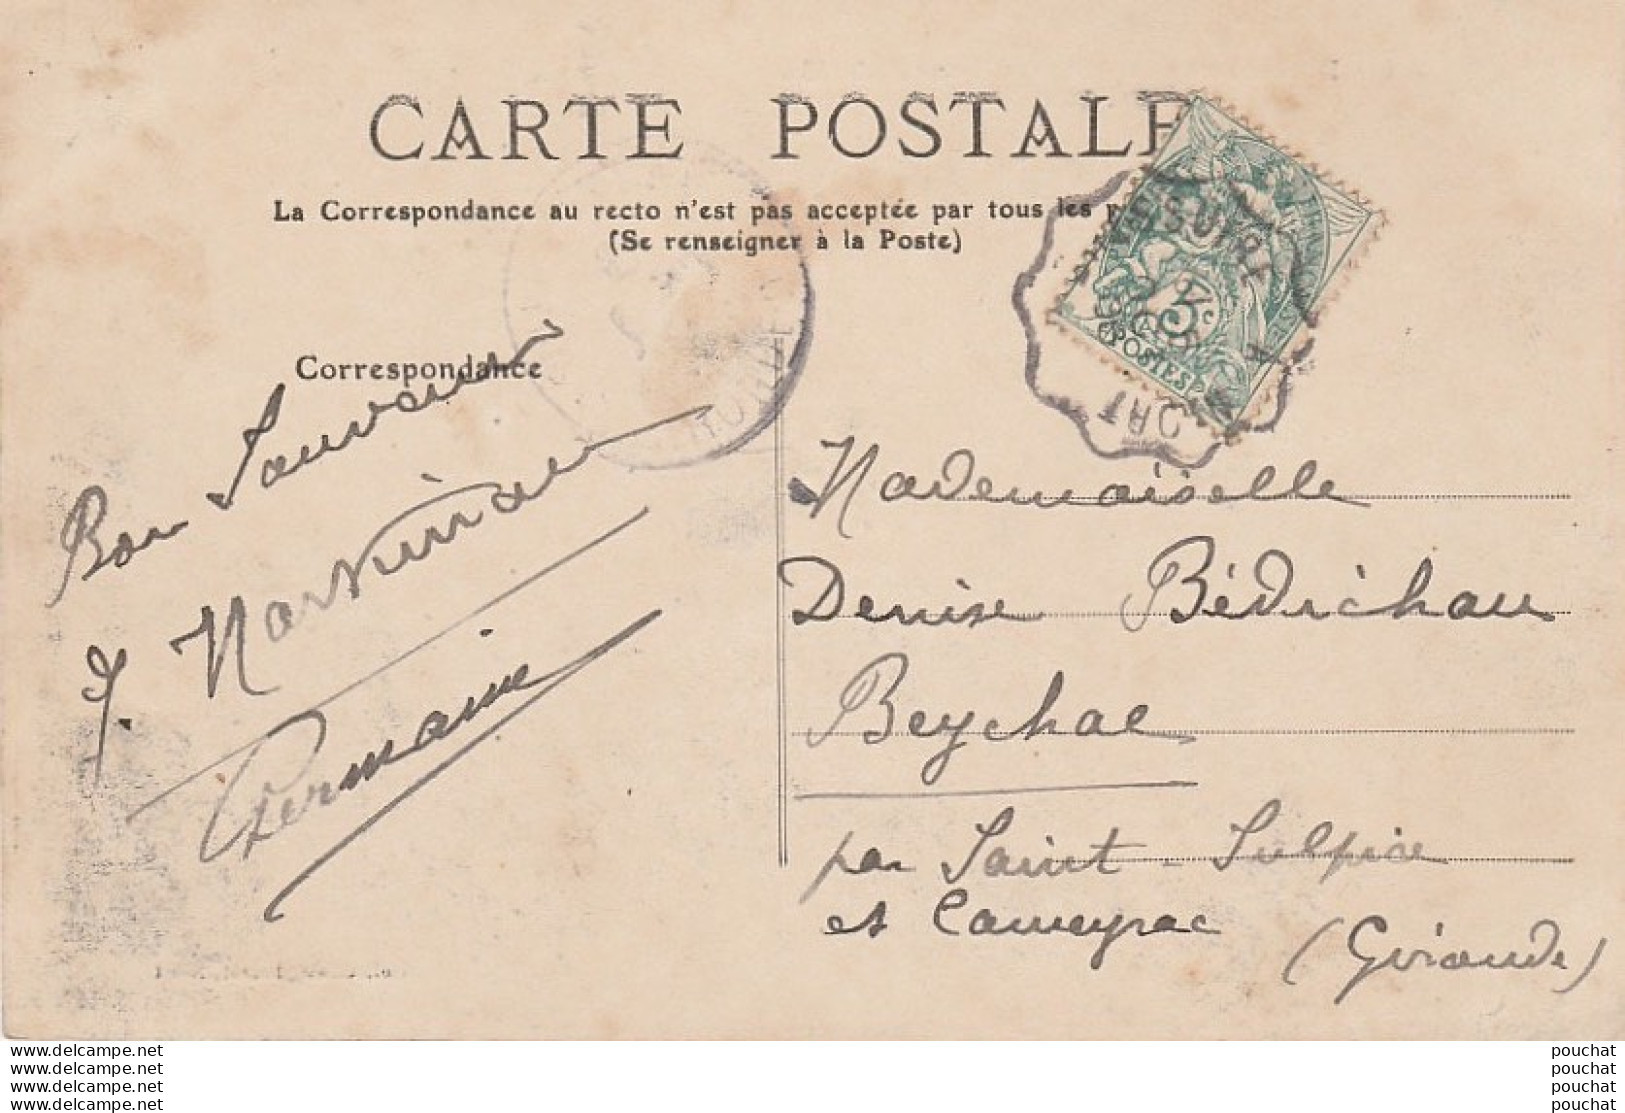 CARTE POSTALE
La Correspondance au recto n'est pas acceptée par tous les p
(Se renseigner à la Poste)
Correspondance
Bon Souvenir
Germaine
Mademoiselle
Denise Bédichau
Beychac
par Saint-Sulpice
et Cameyrac
(Gironde)
5c
POSTES
www.delcampe.net
www.delcampe.net
www.delcampe.net
www.delcampe.net
pouchat
pouchat
pouchat
pouchat